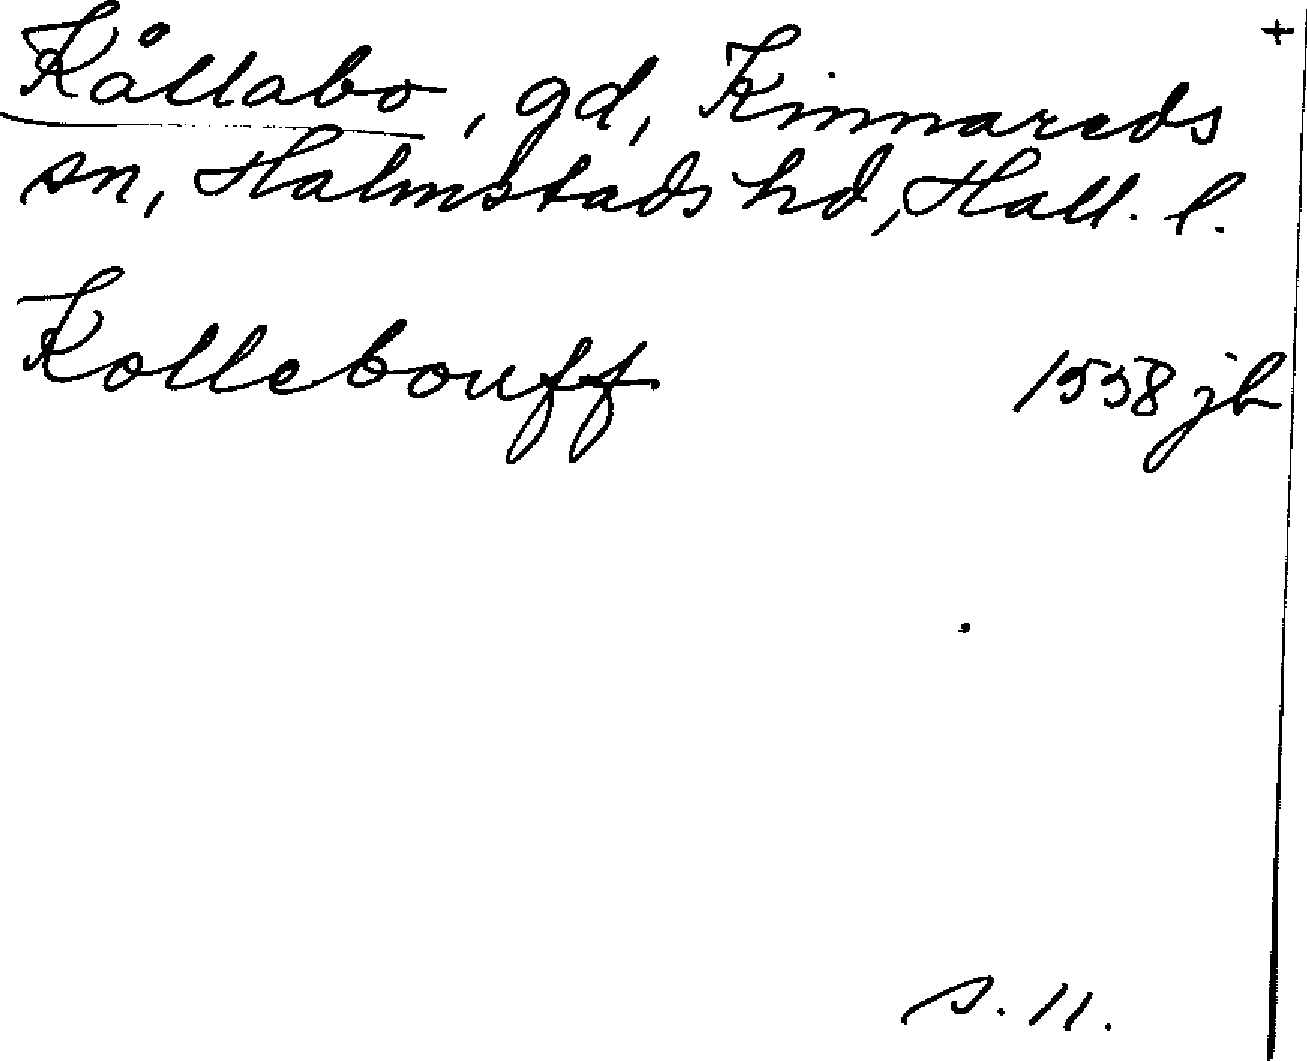 +
Kållabo, gd, Kinnareds
sn, Halmstads hd, Hall. l.
Kollebouff 1558 jb
s. 11.